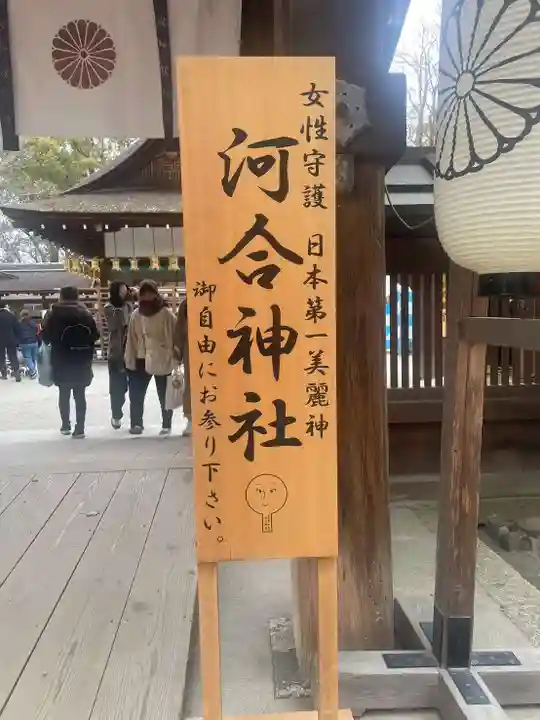 女性守護 日本第一美麗神
河合神社
御自由にお参り下さい。